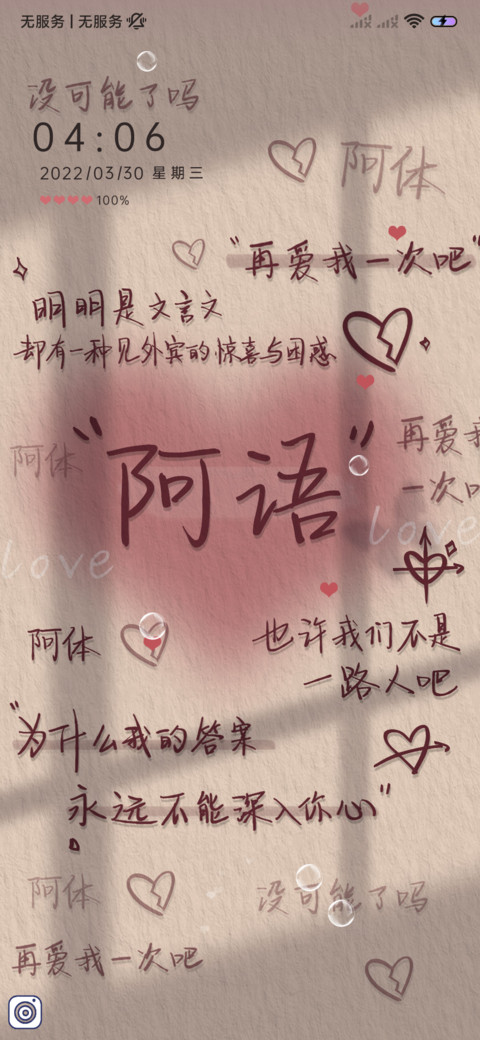 无服务 | 无服务
没可能了吗
04:06
2022/03/30 星期三
100%
阿体
"再爱我一次吧"
明明是文言文
却有一种见外宾的惊喜与困惑
阿体
"阿语"
再爱我
一次吧
love
love
阿体
也许我们不是
一路人吧
"为什么我的答案
永远不能深入你心"
阿体
没可能了吗
再爱我一次吧